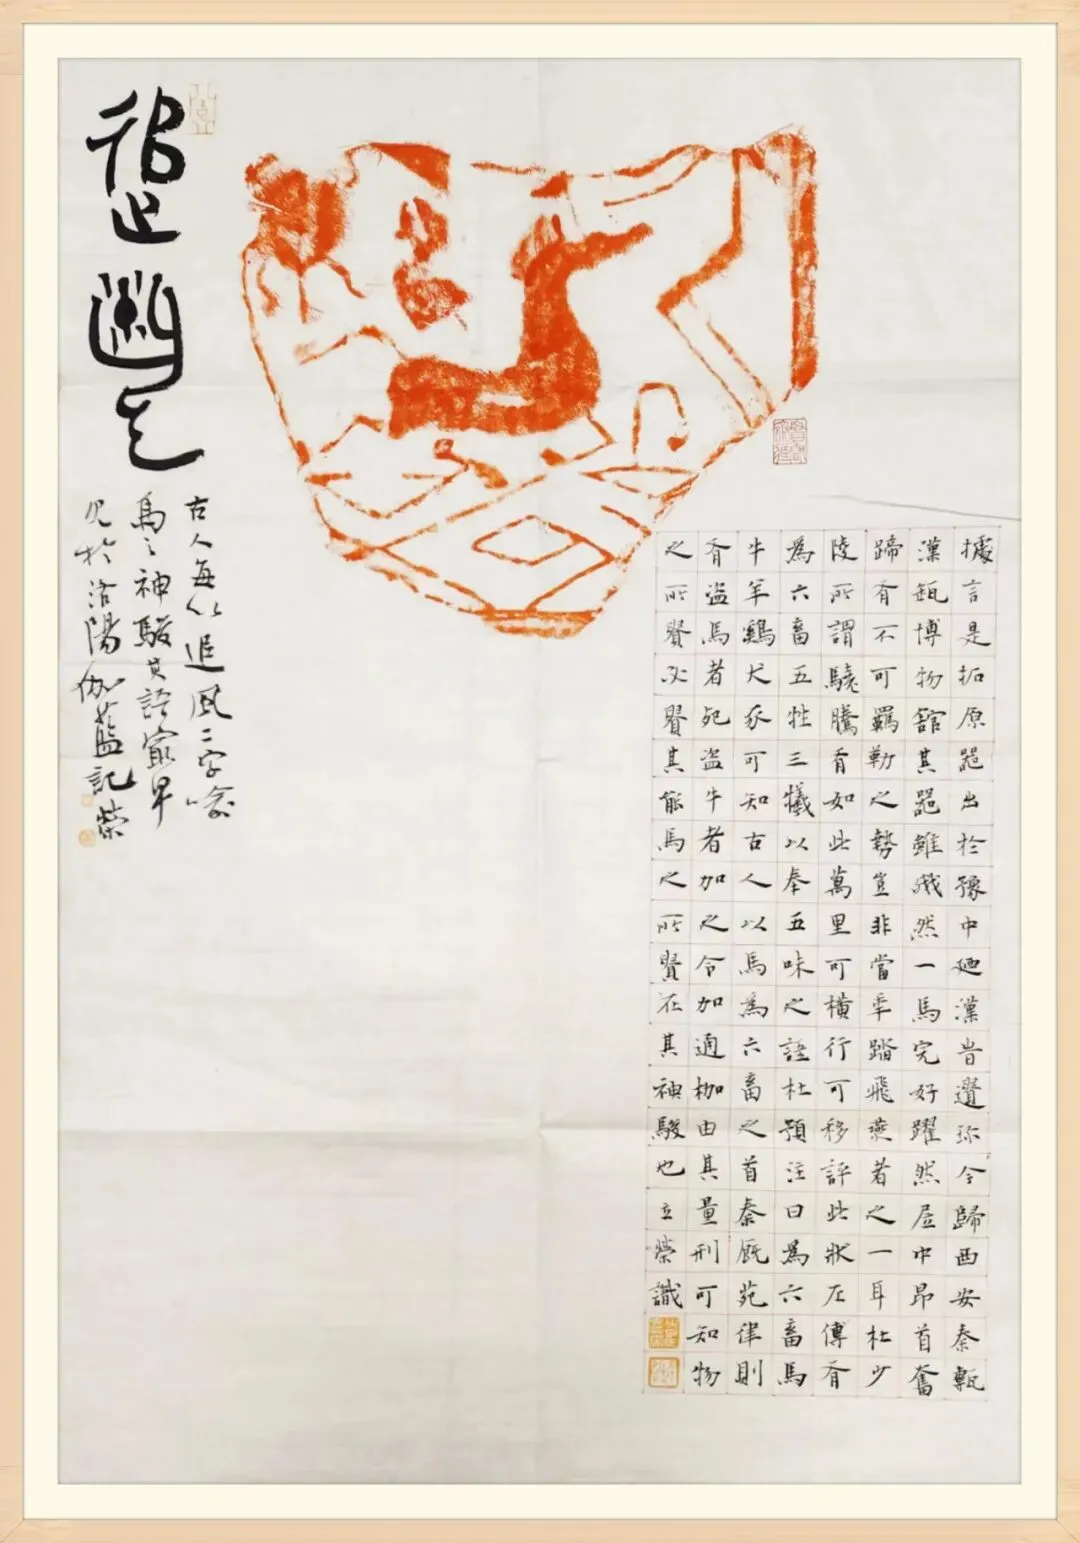 據言是拓原器出於豫中迺漢昔遺珎今歸西安秦甎
漢瓦博物館其器雖殘然一馬完好躍然居中昂首奮
蹄有不可羈勒之勢豈非當年踏飛燕者之一耳杜少
陵所謂驍騰有如此萬里可橫行可移評此狀左傳有
為六畜五牲三犧以奉五味之語杜預注曰為六畜馬
牛羊鷄犬豕可知古人以馬為六畜之首秦厩苑律則
有盜馬者死盜牛者加之令加適枷由其量刑可知物
之所賢必賢其能馬之所賢在其神駿也立榮識
古人每以追風二字喻
馬之神駿其語最早
見於洛陽伽藍記榮